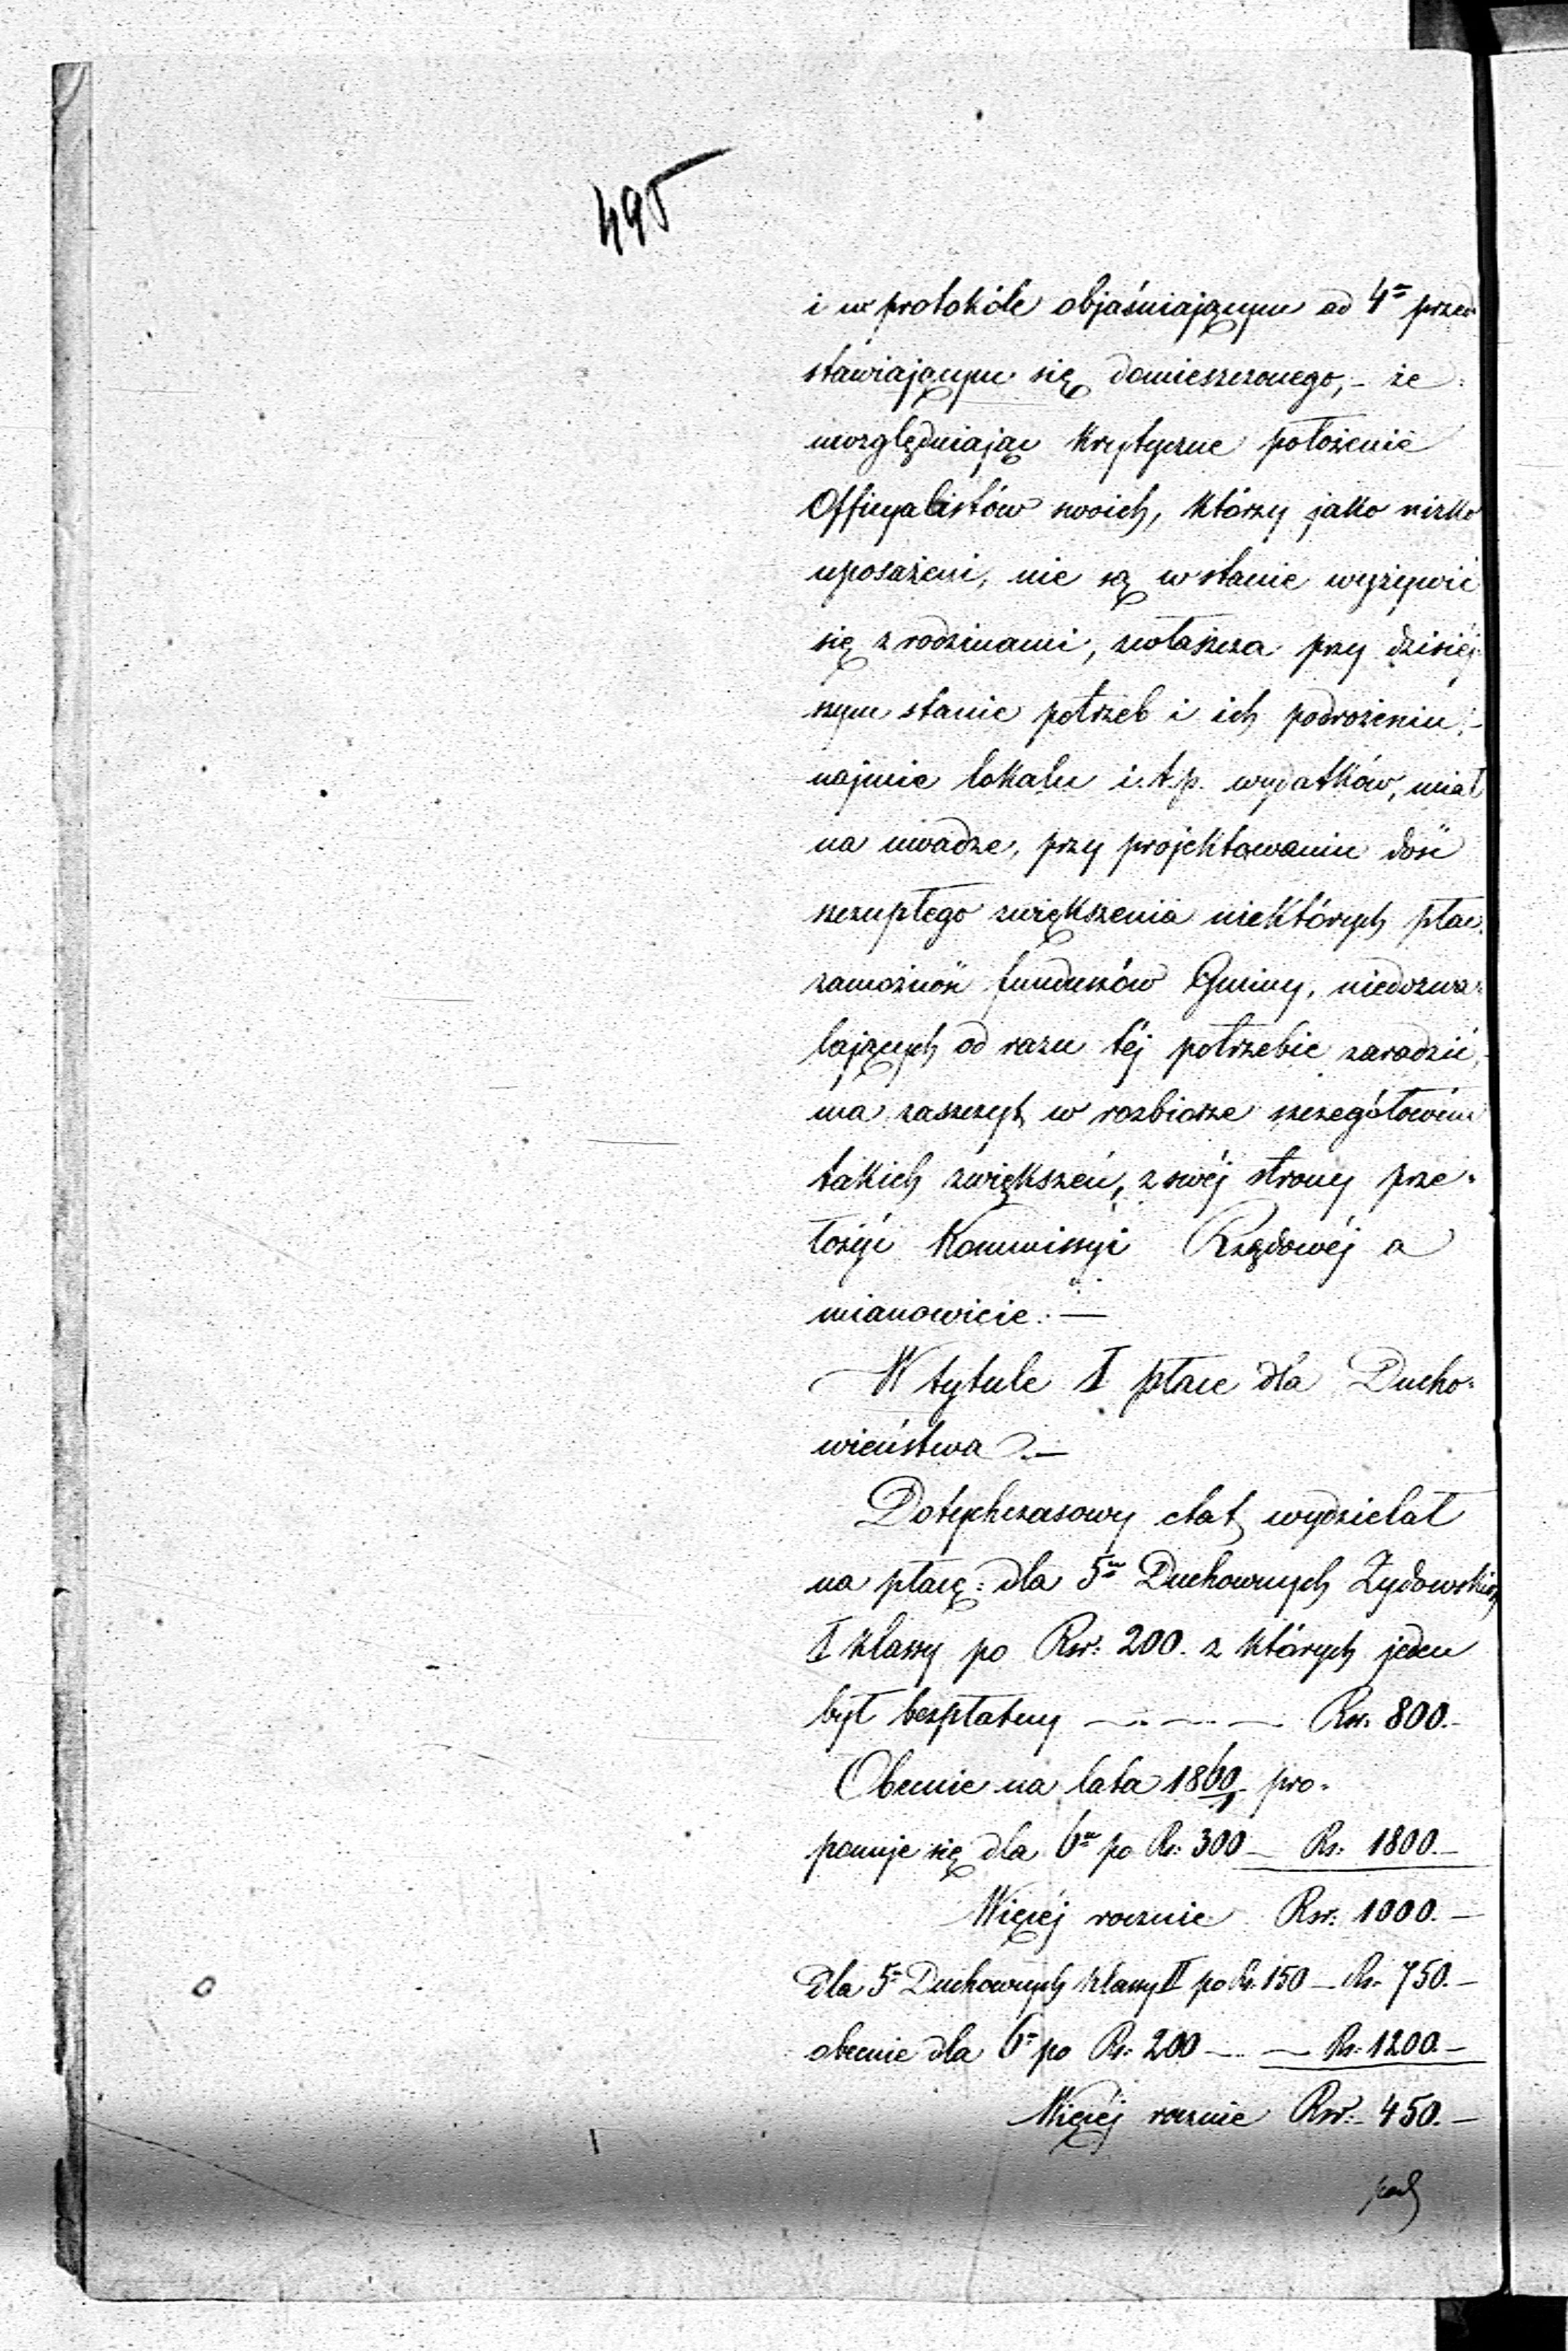 495
i w protokóle objaśniającym ad 4ᵐ przed
stawiającym się domieszczonego, - że
uwzględniając krytyczne położenie
Officyalistów swoich, którzy jako nizko
uposażeni, nie są w stanie wyżywić
się z rodzinami, zwłaszcza przy dzisiéj
szym stanie potrzeb i ich podrożeniu, -
najmie lokalu i. t. p. wydatków, miał
na uwadze, przy projektowaniu dość
szczupłego zwiększenia niektórych płac,
zamożność funduszów Gminy, niedozwa-
lających od razu téj potrzebie zaradzić, -
ma zaszczyt w rozbiorze szczegółowém
takich zwiększeń, z swéj strony prze-
łożyć Kommissyi Rządowéj a
mianowicie: —
W tytule I płace dla Ducho-
wieństwa. —
Dotychczasowy etat wydzielał
na płacę: dla 5ᵘ Duchownych Żydowskich
I klassy po Rsr: 200. z których jeden
był bezpłatny — . — . — Rsr. 800. -
Obecnie na lata 1860/ pro-
ponuje się dla 6ᵘ po Rs: 300 — Rs: 1800. —
Więcéj rocznie Rsr: 1000. —
Dla 5ᵘ Duchownych klassy II po Rs. 150 — Rs. 750. —
obecnie dla 6ᵘ po Rs: 200 — . — Rs: 1200. —
Więcéj rocznie Rsr: 450. —